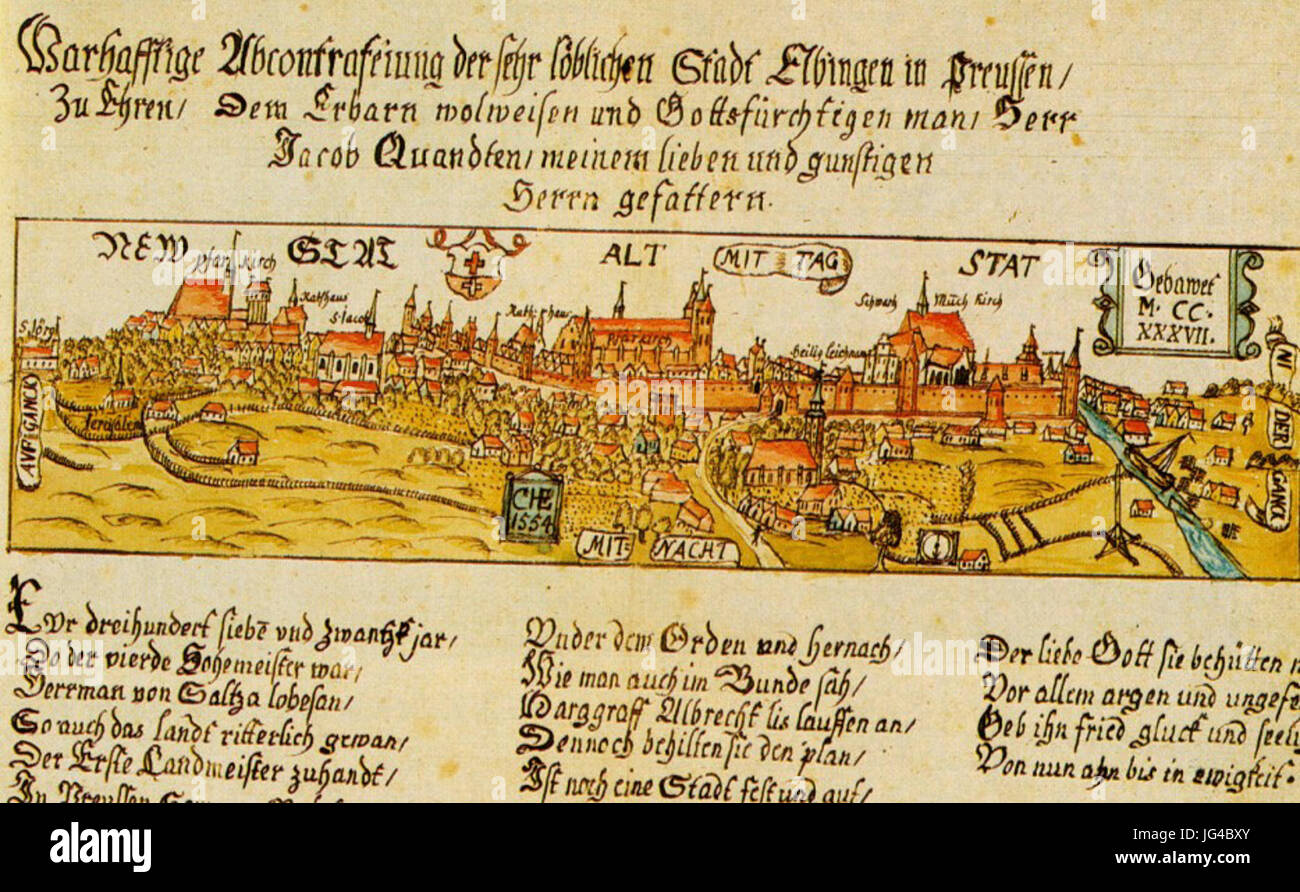 Warhafftige Abcontrafeiung der sehr löblichen Stadt Elbingen in Preussen/
Zu Ehren/ Dem Erbarn wolweisen und Gottsfürchtigen man/ Herr
Jacob Quandten/ meinem lieben und gunstigen
Herrn gefattern.
NEW STAT ALT MIT TAG STAT
Pfar Kirch
Rathhaus
S. Jacob
S. Jörg
Rathhaus
Pfarkirch
Heilig Leichnam
Schwarz Münch Kirch
Gebawet
M. CC.
XXXVII.
AUFGANCK
Jerusalem
CHE
1554
MIT= NACHT
NI
DER
GANCK
Vor dreihundert siebē vnd zwantzk jar/
Do der vierde Hohemeister war/
Herrman von Saltza lobesan/
So auch das landt ritterlich gewan/
Der Erste Landmeister zuhandt/
In Preussen
Vnder dem Orden und hernach/
Wie man auch im Bunde sah/
Marggraff Albrecht lis lauffen an/
Dennoch behilten sie den plan/
Ist noch eine Stadt fest und auf/
Der liebe Gott sie behütten
Vor allem argen und
Geb ihn fried gluck und
Von nun ahn bis in ewigkeit.
alamy stock photo
JG4BXY
www.alamy.com